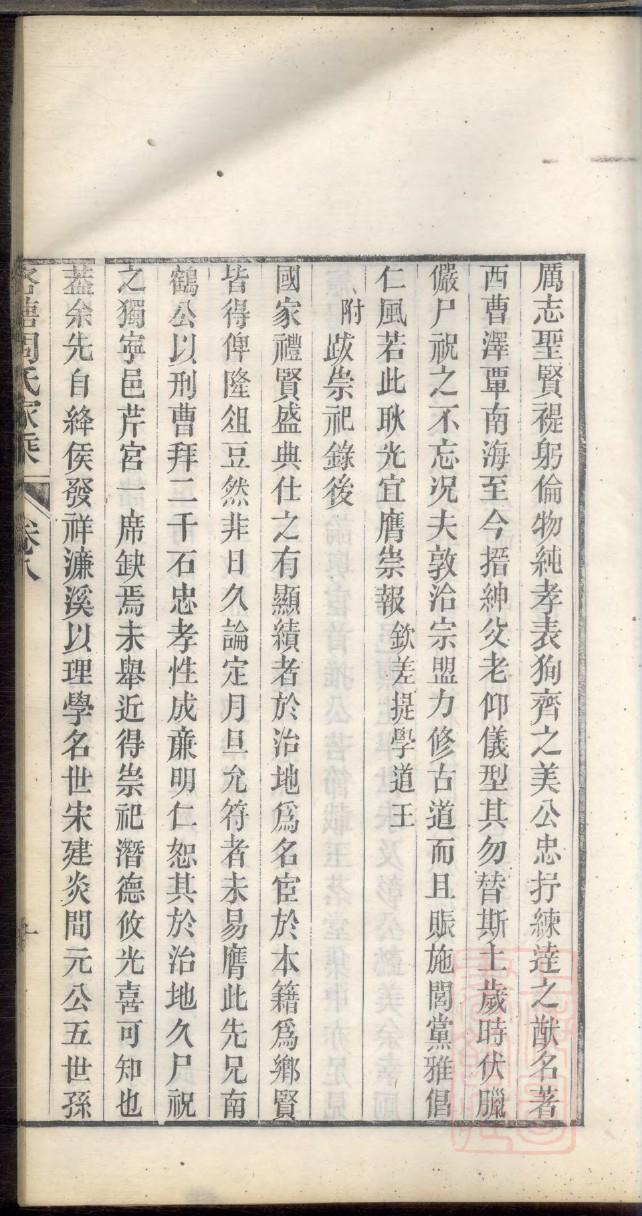 厲志聖賢禔躬倫物純孝表狥齊之美公忠抒練達之猷名著
西曹澤覃南海至今搢紳父老仰儀型其勿替斯土歲時伏臘
儼尸祝之不忘况夫敦洽宗盟力修古道而且賑施閭黨雅倡
仁風若此耿光宜膺崇報 欽差提學道王
附 跋崇祀錄後
國家禮賢盛典仕之有顯績者於治地爲名宦於本籍爲鄉賢
皆得俾隆俎豆然非日久論定月旦允符者未易膺此先兄南
鶴公以刑曹拜二千石忠孝性成亷明仁恕其於治地久尸祝
之獨寧邑芹宮一席缺焉未舉近得崇祀潛德攸光喜可知也
蓋余先自絳侯發祥濂溪以理學名世宋建炎間元公五世孫
周氏家乘 卷八